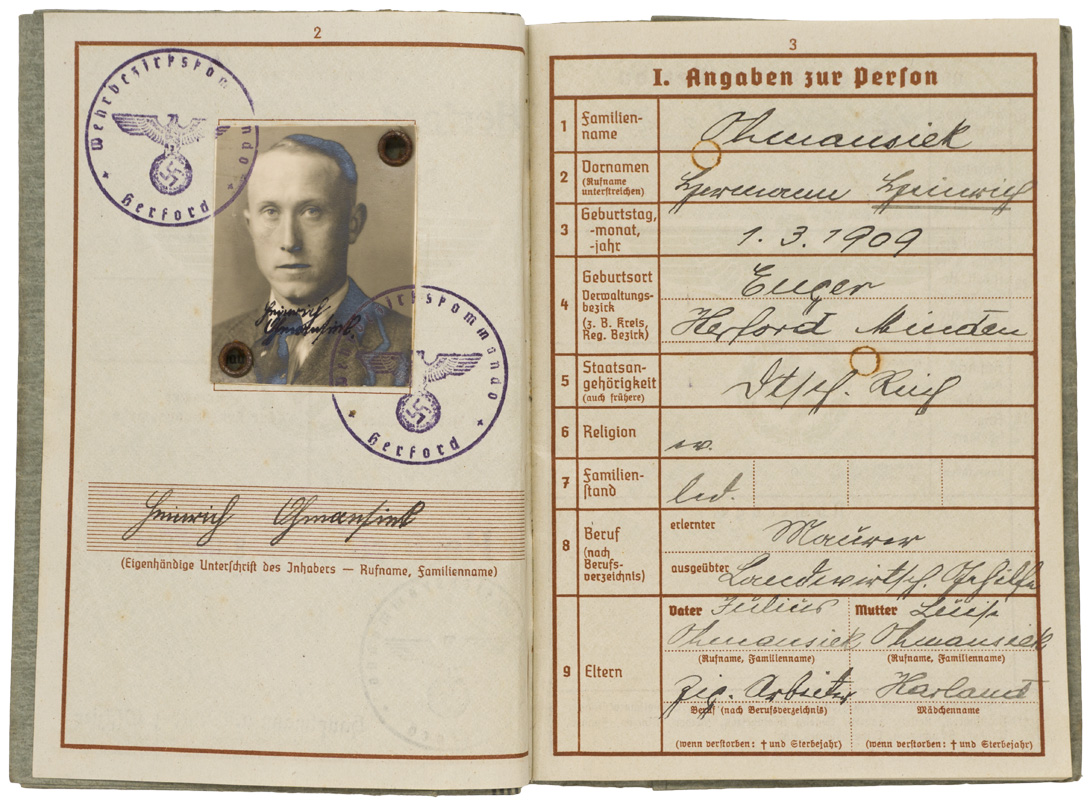 2
Wehrbezirkskommando
Herford
Heinrich
Ohmansiek
Wehrbezirkskommando
Herford
Heinrich Ohmansiek
(Eigenhändige Unterschrift des Inhabers — Rufname, Familienname)
3
I. Angaben zur Person
1 Familien-
name
Ohmansiek
2 Vornamen
(Rufname
unterstreichen)
Hermann Heinrich
3 Geburtstag,
-monat,
-jahr
1. 3. 1909
4 Geburtsort
Verwaltungs-
bezirk
(z. B. Kreis,
Reg. Bezirk)
Enger
Herford Minden
5 Staatsan-
gehörigkeit
(auch frühere)
Dtsch. Reich
6 Religion
ev.
7 Familien-
stand
led.
8 Beruf
(nach
Berufs-
verzeichnis)
erlernter Maurer
ausgeübter Landwirtsch. Gehilfe
9 Eltern
Vater Julius
Ohmansiek
(Rufname, Familienname)
Zig. Arbeiter
Beruf (nach Berufsverzeichnis)
(wenn verstorben: † und Sterbejahr)
Mutter Luise
Ohmansiek
(Rufname, Familienname)
Harland
Mädchenname
(wenn verstorben: † und Sterbejahr)